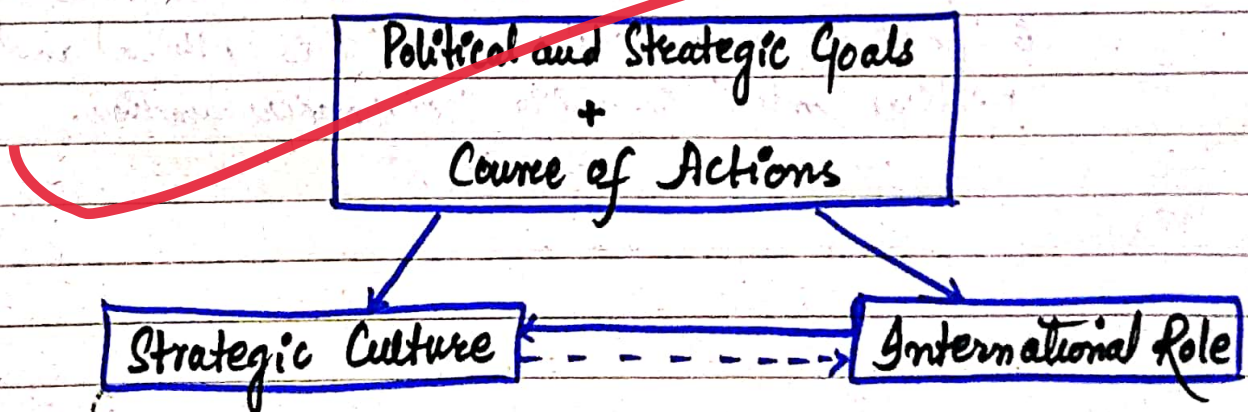 Political and Strategic Goals
+
Course of Actions
Strategic Culture
International Role